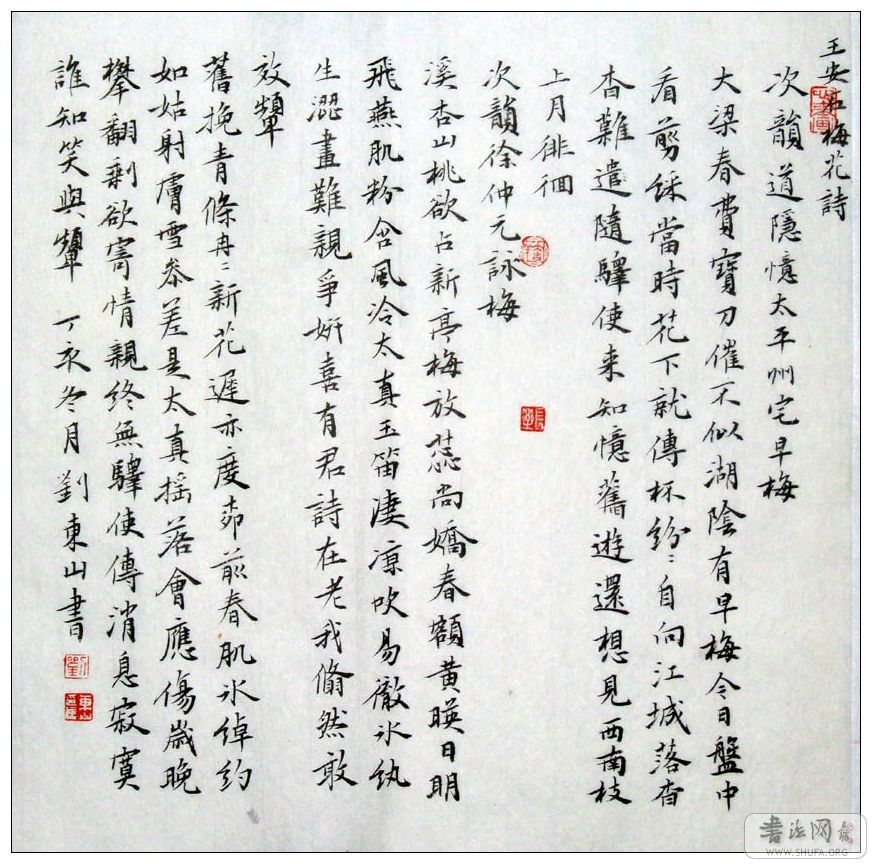 王安石梅花詩
次韻道隱憶太平州宅早梅
大梁春費寶刀催不似湖陰有早梅今日盤中
看剪綵當時花下就傳杯紛〻自向江城落杳
杳難遣隨驛使来知憶舊遊還想見西南枝
上月徘徊
次韻徐仲元詠梅
溪杏山桃欲占新亭梅放蕊尚嬌春額黄映日明
飛燕肌粉含風冷太真玉笛凄凉吹易徹氷紈
生澀畫難親爭妍喜有君詩在老我翛然敢
效顰
舊挽青條冉〻新花遲亦度栁前春肌氷綽約
如姑射膚雪參差是太真摇落會應傷歲晚
攀翻剩欲寄情親終無驛使傳消息寂寞
誰知笑與顰 丁亥冬月劉東山書
書法网
WWW.SHUFA.ORG